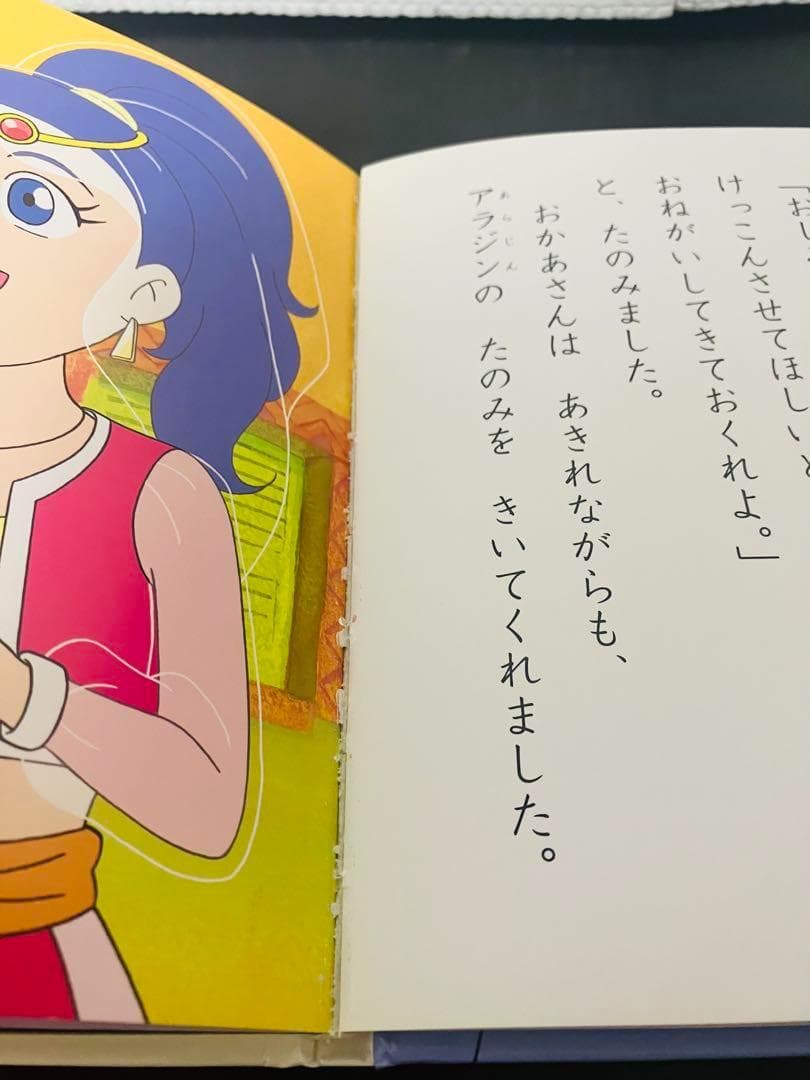 けっこんさせてほしいと
おねがいしてきておくれよ。」
と、たのみました。
おかあさんは　あきれながらも、
アラジンの　たのみを　きいてくれました。
あらじん